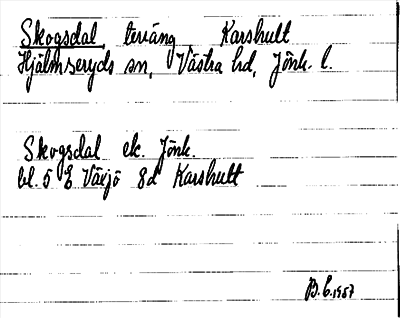 Skogsdal, teräng, Karshult
Hjälmseryds sn, Västra hd, Jönk. l.
Skogsdal ek. Jönk.
bl. 5 E Växjö 8d Karshult
B.E. 1957